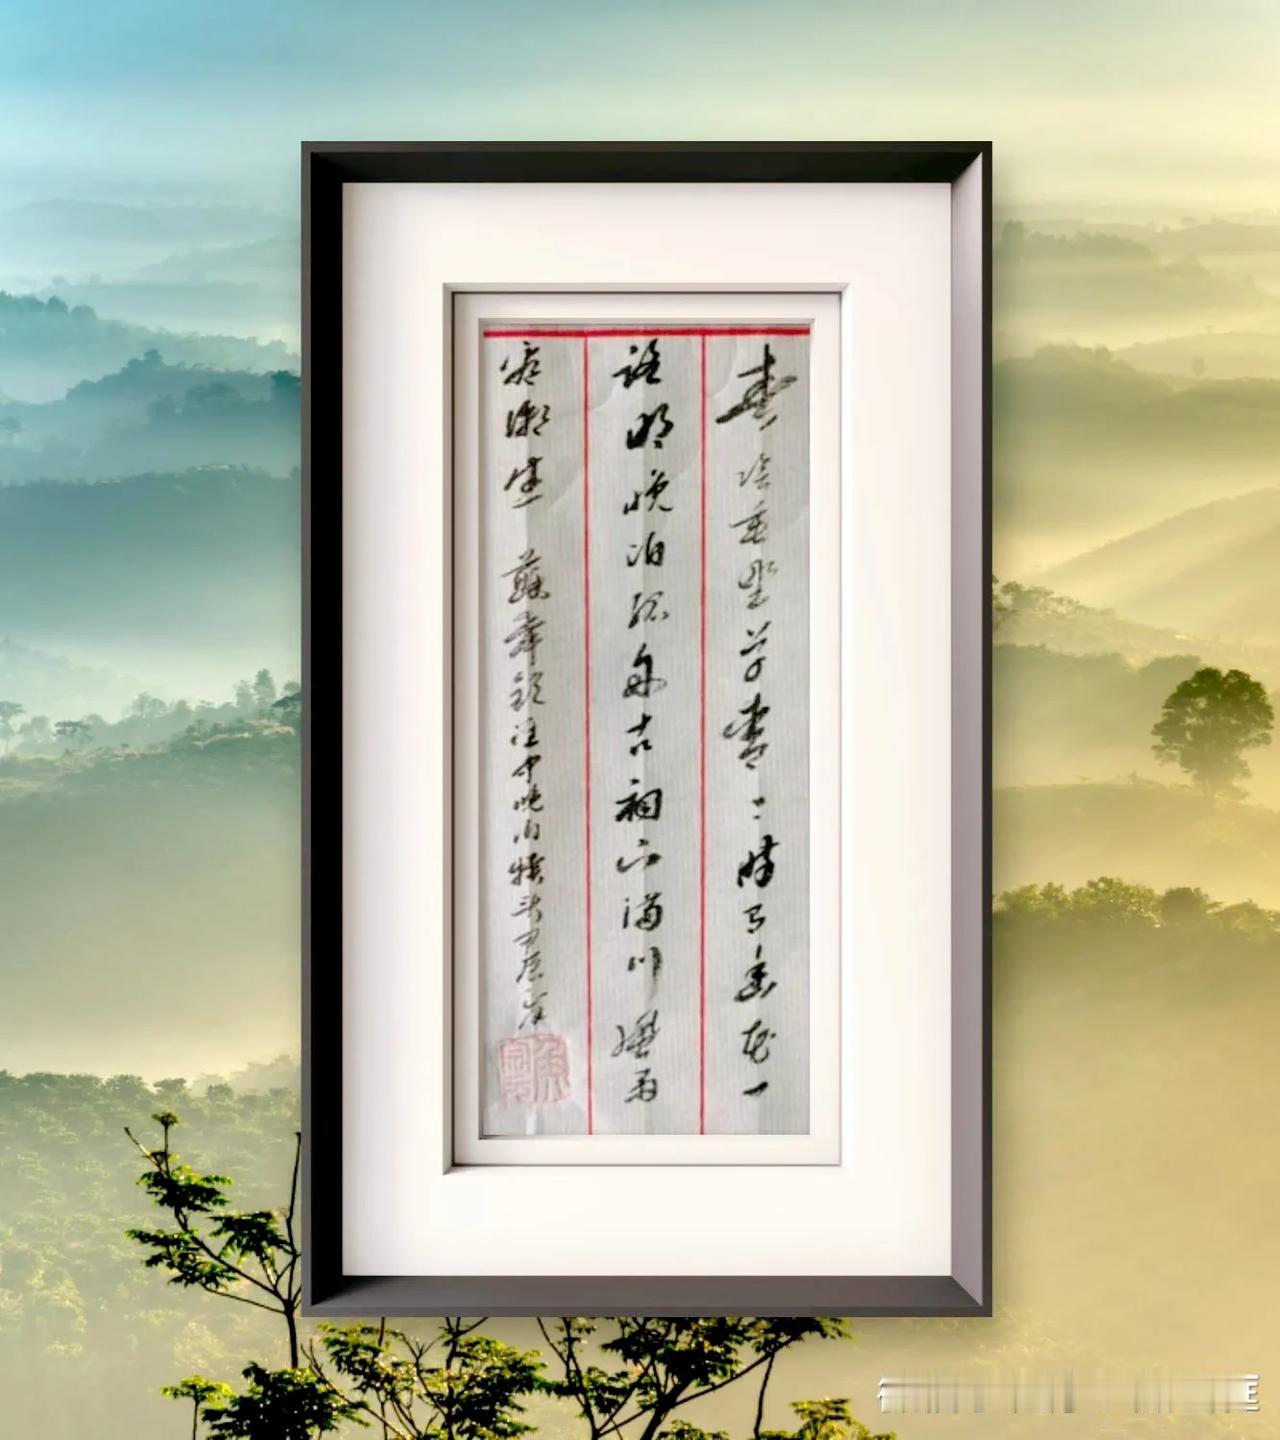 春陰垂野草青々時有幽花一
樹明晚泊孤舟古祠下滿川風雨
看潮生 蘇舜欽淮中晚泊犢頭